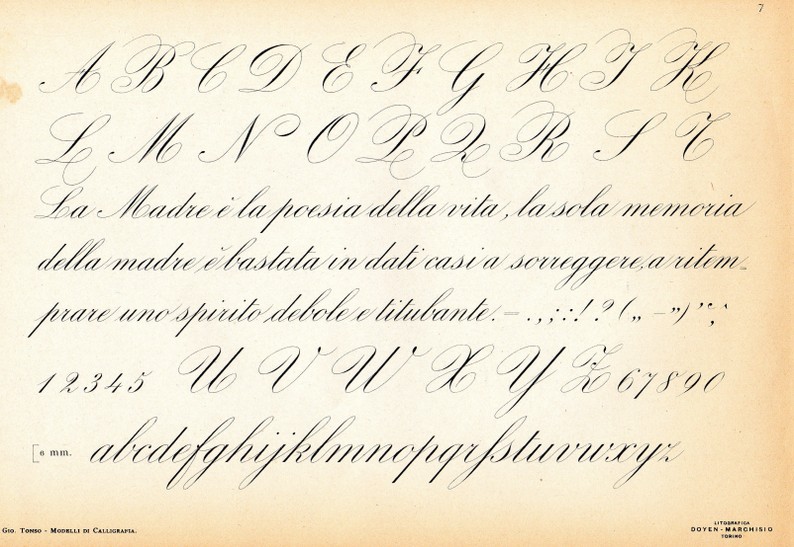 7
A B C D E F G H I K
L M N O P Q R S T
La Madre è la poesia della vita, la sola memoria
della madre è bastata in dati casi a sorreggere, a ritem=
prare uno spirito debole e titubante. — . , ; : ! ? („ — ”) ’ “ ;
1 2 3 4 5 U V W X Y Z 6 7 8 9 0
6 mm. abcdefghijklmnopqrſstuvwxyz
Gio. Tonso - Modelli di Calligrafia.
LITOGRAFICA
DOYEN-MARCHISIO
TORINO